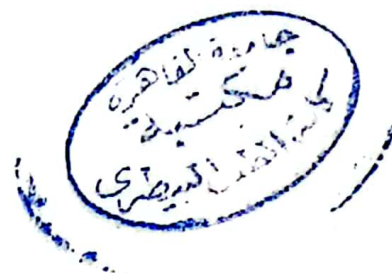 جامعة القاهرة
مكتبة
كلية الطب البيطرى